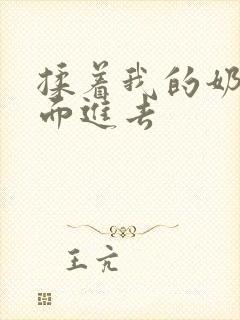 揉着我的奶
而進去
王亢